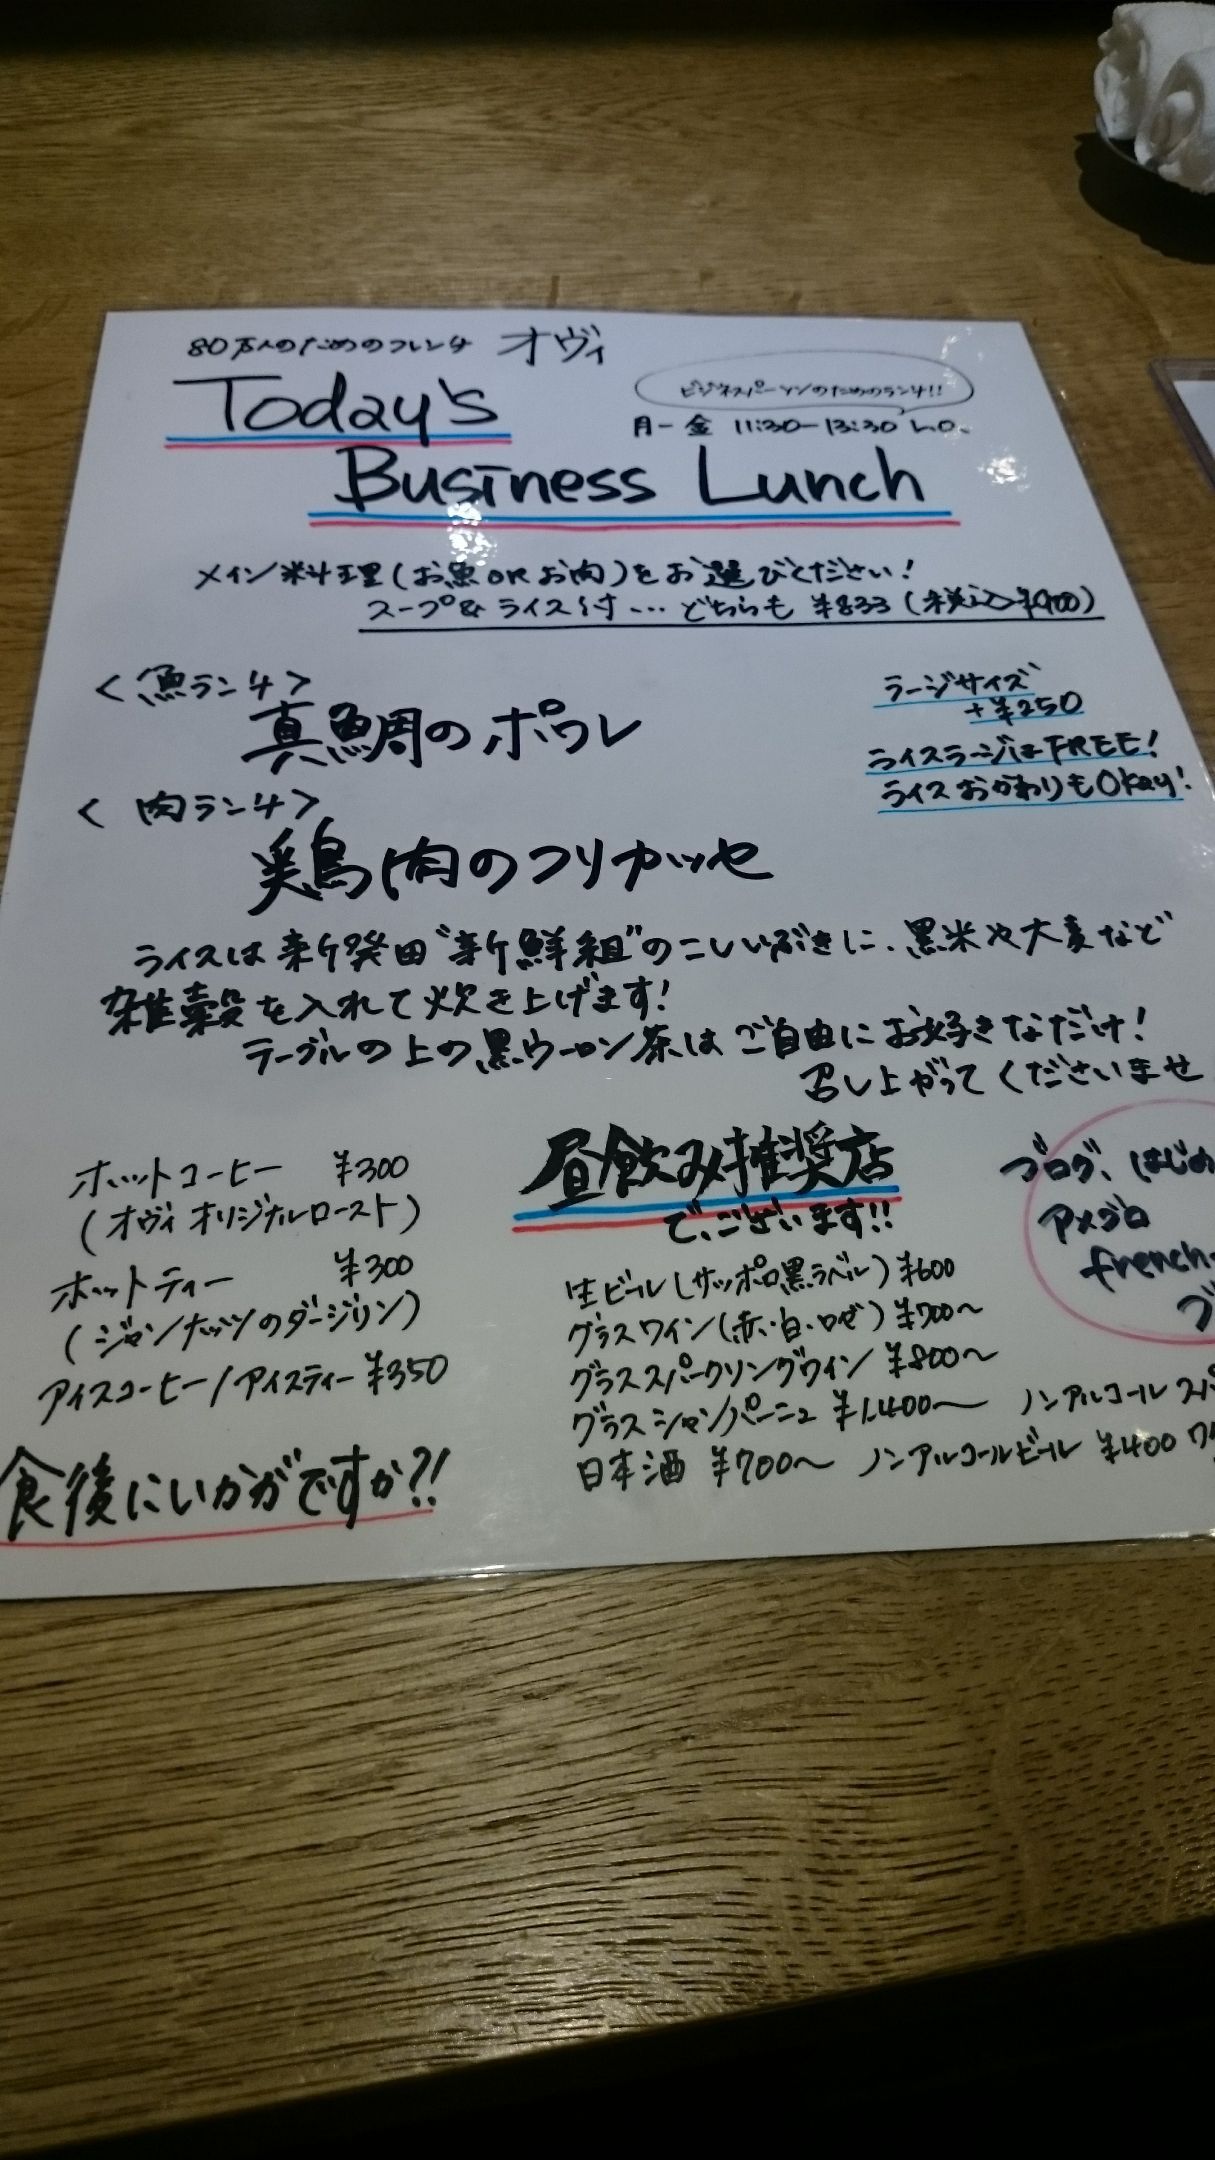 80万人のためのフレンチ オヴィ
Today's
ビジネスパーソンのためのランチ!!
月-金 11:30-13:30 L.O.
Business Lunch
メイン料理(お魚 OR お肉)をお選びください!
スープ&ライス付…どちらも ¥833(税込¥900)
<魚ランチ>
真鯛のポワレ
ラージサイズ
+¥250
ライスラージはFREE!
ライスおかわりもOkay!
<肉ランチ>
鶏肉のフリカッセ
ライスは新発田"新鮮組"のこしいぶきに、黒米や大麦など
雑穀を入れて炊き上げます!
テーブルの上の黒ウーロン茶はご自由にお好きなだけ!
召し上がってくださいませ
ホットコーヒー ¥300
(オヴィオリジナルロースト)
ホットティー ¥300
(ジャンナッツのダージリン)
アイスコーヒー/アイスティー ¥350
食後にいかがですか?!
昼飲み推奨店
でございます!!
生ビール(サッポロ黒ラベル) ¥600
グラスワイン(赤・白・ロゼ) ¥700〜
グラススパークリングワイン ¥800〜
グラスシャンパーニュ ¥1,400〜 ノンアルコールスパ
日本酒 ¥700〜 ノンアルコールビール ¥400 ワ
ブログ、はじめ
アメブロ
french-
ブ